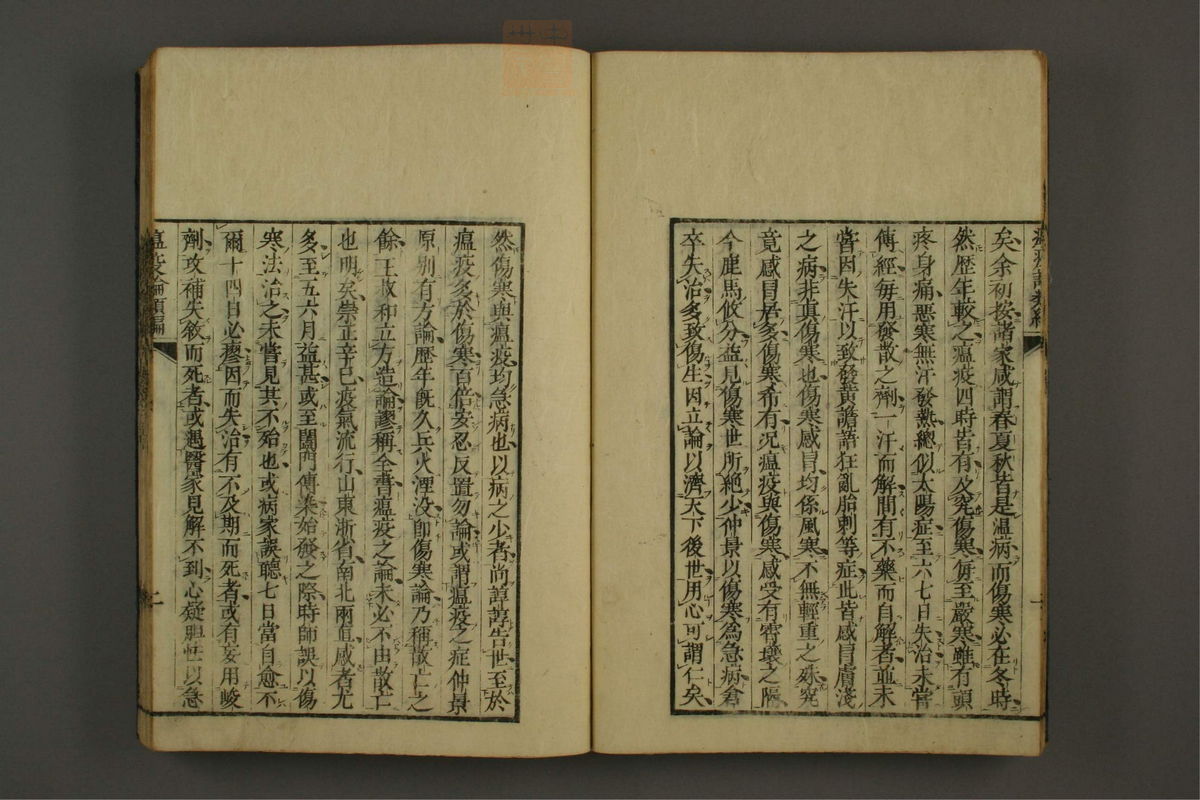 矣余初按諸家咸謂春夏秋皆是温病而傷寒必在冬時
然歴年較之瘟疫四時皆有及究傷寒毎至嚴寒雖有頭
疼身痛悪寒無汗發熱總似太陽症至六七日失治未嘗
傳經毎用發散之劑一汗而解間有不藥而自解者並未
嘗因失汗以致發黄譫語狂亂胎刺等症此皆感冒膚淺
之病非真傷寒也傷寒感冒均係風寒不無輕重之殊究
竟感冒居多傷寒希有况瘟疫與傷寒感受有霄壤之隔
今鹿馬攸分益見傷寒世所絶少仲景以傷寒為急病倉
卒失治多致傷生因立論以濟天下後世用心可謂仁矣
然傷寒與瘟疫均急病也以病之少者尚諄諄告世至於
瘟疫多於傷寒百倍安忍反置勿論或謂瘟疫之症仲景
原别有方論歴年既久兵火湮没即傷寒論乃稱散亡之
餘王叔和立方造論謬稱全書瘟疫之論未必不由散亡
也明矣崇正辛巳疫氣流行山東浙省南北兩直感者尤
多至五六月益甚或至闔門傳染始發之際時師誤以傷
寒法治之未嘗見其不殆也或病家誤聽七日當自愈不
爾十四日必瘳因而失治有不及期而死者或有妄用峻
劑攻補失敘而死者或遇醫家見解不到心疑膽怯以急
瘟疫論類編
二